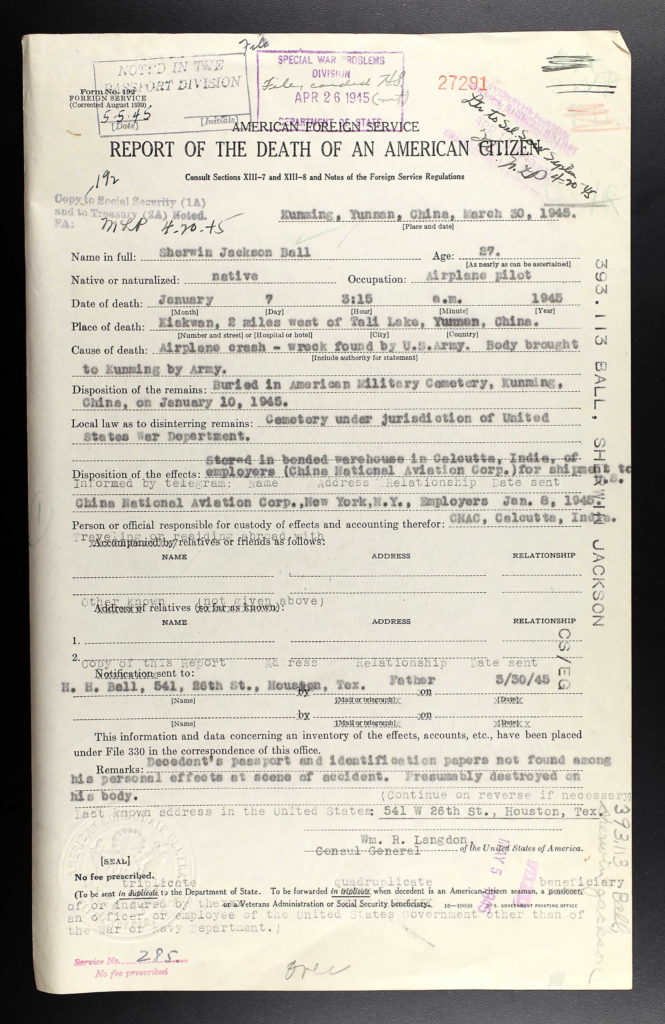 File
NOT'D IN THE
PASSPORT DIVISION
5-5-45
[Date] [Initials]
SPECIAL WAR PROBLEMS
DIVISION
APR 26 1945
DEPARTMENT OF STATE
27291
4-20-45
Form No. 192
FOREIGN SERVICE
(Corrected August 1939)
AMERICAN FOREIGN SERVICE
REPORT OF THE DEATH OF AN AMERICAN CITIZEN
Consult Sections XIII-7 and XIII-8 and Notes of the Foreign Service Regulations
192
Copy to Social Security (1A)
and to Treasury (2A) Noted.
FA: MLP 4-20-45
Kunming, Yunnan, China, March 30, 1945.
[Place and date]
Name in full: Sherwin Jackson Ball Age: 27.
[As nearly as can be ascertained]
Native or naturalized: native Occupation: Airplane pilot
Date of death: January 7 3:15 a.m. 1945
[Month] [Day] [Hour] [Minute] [Year]
Place of death: Kiakwan, 2 miles west of Tali Lake, Yunnan, China.
[Number and street] or [Hospital or hotel] [City] [Country]
Cause of death: Airplane crash - wreck found by U.S.Army. Body brought
[Include authority for statement]
to Kunming by Army.
Disposition of the remains: Buried in American Military Cemetery, Kunming,
China, on January 10, 1945.
Local law as to disinterring remains: Cemetery under jurisdiction of United
States War Department.
Stored in bonded warehouse in Calcutta, India, of
Disposition of the effects: employers (China National Aviation Corp.)for shipment to
U.S.
Informed by telegram: Name Address Relationship Date sent
China National Aviation Corp.,New York,N.Y., Employers Jan. 8, 1945.
Person or official responsible for custody of effects and accounting therefor: CNAC, Calcutta, India.
Traveling or residing abroad with
Accompanied by relatives or friends as follows:
NAME ADDRESS RELATIONSHIP
Other known (not given above)
Address of relatives (so far as known):
NAME ADDRESS RELATIONSHIP
1.
2.
Copy of this Report Address Relationship Date sent
Notification sent to:
H. H. Ball, 541, 26th St., Houston, Tex. Father 3/30/45
by on
[Name] [Mail or telegraph] [Date]
by on
[Name] [Mail or telegraph] [Date]
This information and data concerning an inventory of the effects, accounts, etc., have been placed
under File 330 in the correspondence of this office.
Remarks: Decedent's passport and identification papers not found among
his personal effects at scene of accident. Presumably destroyed on
his body. (Continue on reverse if necessary
Last known address in the United States: 541 W 26th St., Houston, Tex.
Wm. R. Langdon,
Consul General of the United States of America.
[SEAL]
No fee prescribed.
triplicate quadruplicate beneficiary
(To be sent in duplicate to the Department of State. To be forwarded in triplicate when decedent is an American citizen seaman, a pensioner,
of or insured by the
or a Veterans Administration or Social Security beneficiary. 16-10500 U. S. GOVERNMENT PRINTING OFFICE
an officer or employee of the United States Government other than of
the War or Navy Department.)
Service No. 285
No fee prescribed
over
393.113 BALL, SHERWIN JACKSON
CS/EG
MAY 5
393.113 Ball, Sherwin Jackson